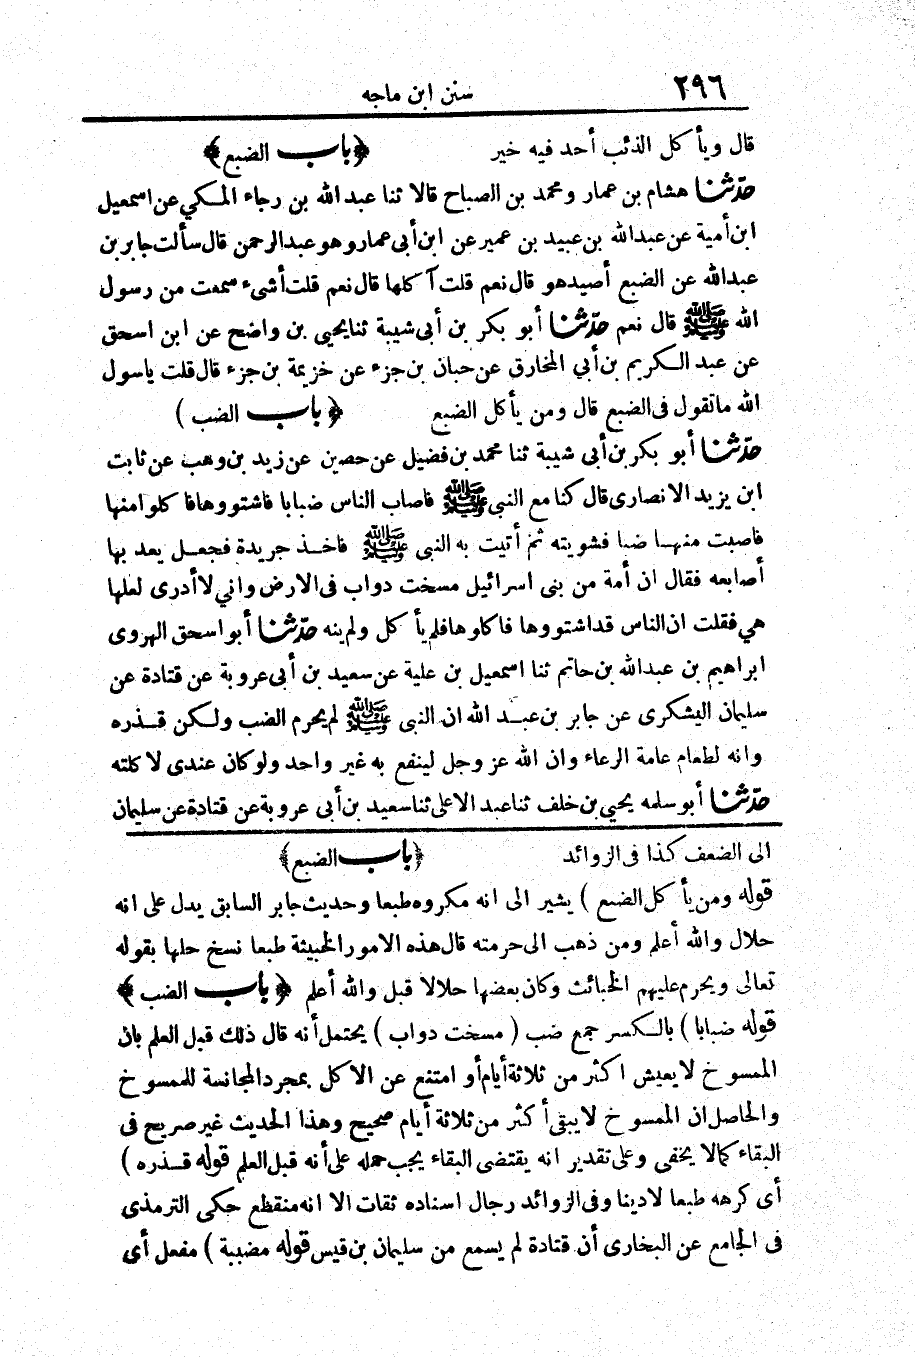 ٢٩٦ سنن ابن ماجه
قال ويأكل الذئب أحد فيه خير ﴿باب الضبع﴾
حدّثنا هشام بن عمار ومحمد بن الصباح قالا ثنا عبد الله بن رجاء المكي عن اسمعيل
ابن أمية عن عبدالله بن عبيد بن عمير عن ابن أبى عمار وهو عبدالرحمن قال سألت جابر بن
عبدالله عن الضبع أصيدهو قال نعم قلت آكلها قال نعم قلت أشىء سمعت من رسول
الله ﷺ قال نعم حدّثنا أبو بكر بن أبى شيبة ثنا يحيى بن واضح عن ابن اسحق
عن عبد الكريم بن أبي المخارق عن حبان بن جزء عن خزيمة بن جزء قال قلت ياسول
الله ماتقول فى الضبع قال ومن يأكل الضبع ﴿باب الضب )
حدّثنا أبو بكر بن أبى شيبة ثنا محمد بن فضيل عن حصين عن زيد بن وهب عن ثابت
ابن يزيد الانصارى قال كنا مع النبي ﷺ فاصاب الناس ضبابا فاشتووها فاكلوا منها
فاصبت منها ضبا فشويته ثم أتيت به النبى ﷺ فاخذ جريدة فجعل يعد بها
أصابعه فقال ان أمة من بنى اسرائيل مسخت دواب فى الارض واني لا أدرى لعلها
هي فقلت ان الناس قد اشتووها فاكلوها فلم يأكل ولم ينه حدّثنا أبو اسحق الهروى
ابراهيم بن عبدالله بن حاتم ثنا اسمعيل بن علية عن سعيد بن أبى عروبة عن قتادة عن
سليمان اليشكرى عن جابر بن عبد الله ان النبى ﷺ لم يحرم الضب ولكن قذره
وانه لطعام عامة الرعاء وان الله عز وجل لينفع به غير واحد ولو كان عندى لاكلته
حدّثنا أبو سلمه يحيي بن خلف ثنا عبد الاعلى ثنا سعيد بن أبى عروبة عن قتادة عن سليمان
الى الضعف كذا فى الزوائد ﴿باب الضبع﴾
قوله ومن يأكل الضبع ) يشير الى انه مكروه طبعا وحديث جابر السابق يدل على انه
حلال والله أعلم ومن ذهب الى حرمته قال هذه الامور الخبيثة طبعا نسخ حلها بقوله
تعالى ويحرم عليهم الخبائث وكان بعضها حلالا قبل والله أعلم ﴿باب الضب﴾
قوله ضبابا ) بالكسر جمع ضب ( مسخت دواب ) يحتمل أنه قال ذلك قبل العلم بان
الممسوخ لا يعيش اكثر من ثلاثة أيام أو امتنع عن الاكل بمجرد المجانسة للممسوخ
والحاصل ان الممسوخ لا يبقى أكثر من ثلاثة أيام صحيح وهذا الحديث غير صريح فى
البقاء كمالا يخفى وعلى تقدير انه يقتضى البقاء يجب حمله على أنه قبل العلم قوله قذره )
أى كرهه طبعا لادينا وفى الزوائد رجال اسناده ثقات الا انه منقطع حكى الترمذى
فى الجامع عن البخارى أن قتادة لم يسمع من سليمان بن قيس قوله مضببة ) مفعل أى